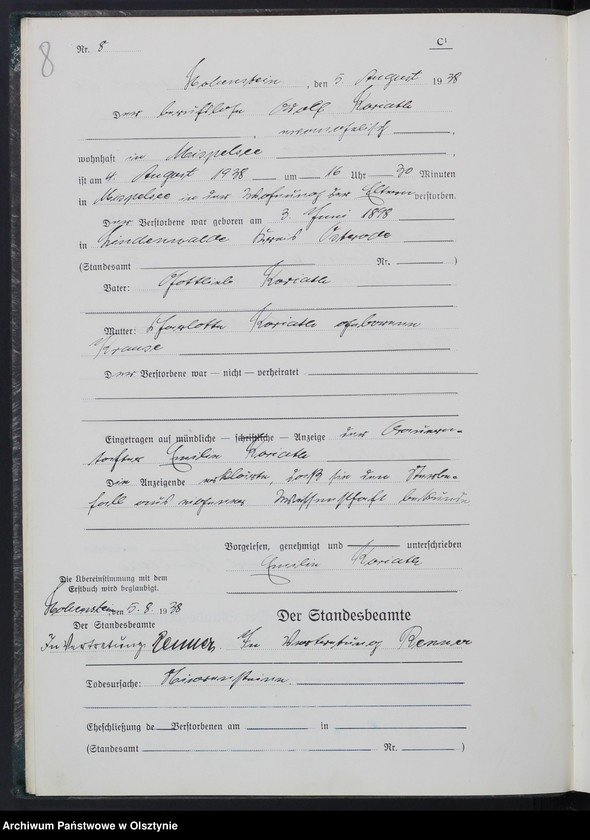 8
Nr. 8
C¹
Hohenstein, den 5. August 1938
Der berufslose Adolf Koriath
, evangelisch,
wohnhaft in Mispelsee,
ist am 4. August 1938 um 16 Uhr 30 Minuten
in Mispelsee in der Wohnung der Eltern verstorben.
Der Verstorbene war geboren am 3. Juni 1898
in Lindenwalde Kreis Osterode
(Standesamt Nr. )
Vater: Gottlieb Koriath
Mutter: Charlotte Koriath geborene
Krause
Der Verstorbene war — nicht — verheiratet
Eingetragen auf mündliche — schriftliche — Anzeige der
Emilie Koriath
Die Anzeigende erklärte, daß sie den Sterbe-
fall aus eigener Wissenschaft bekunde
Vorgelesen, genehmigt und unterschrieben
Emilie Koriath
Die Übereinstimmung mit dem
Erstbuch wird beglaubigt.
Hohenstein, den 5. 8. 1938
Der Standesbeamte
In Vertretung: Renner.
Der Standesbeamte
In Vertretung Renner
Todesursache:
Eheschließung de Verstorbenen am in
(Standesamt Nr. )
Archiwum Państwowe w Olsztynie